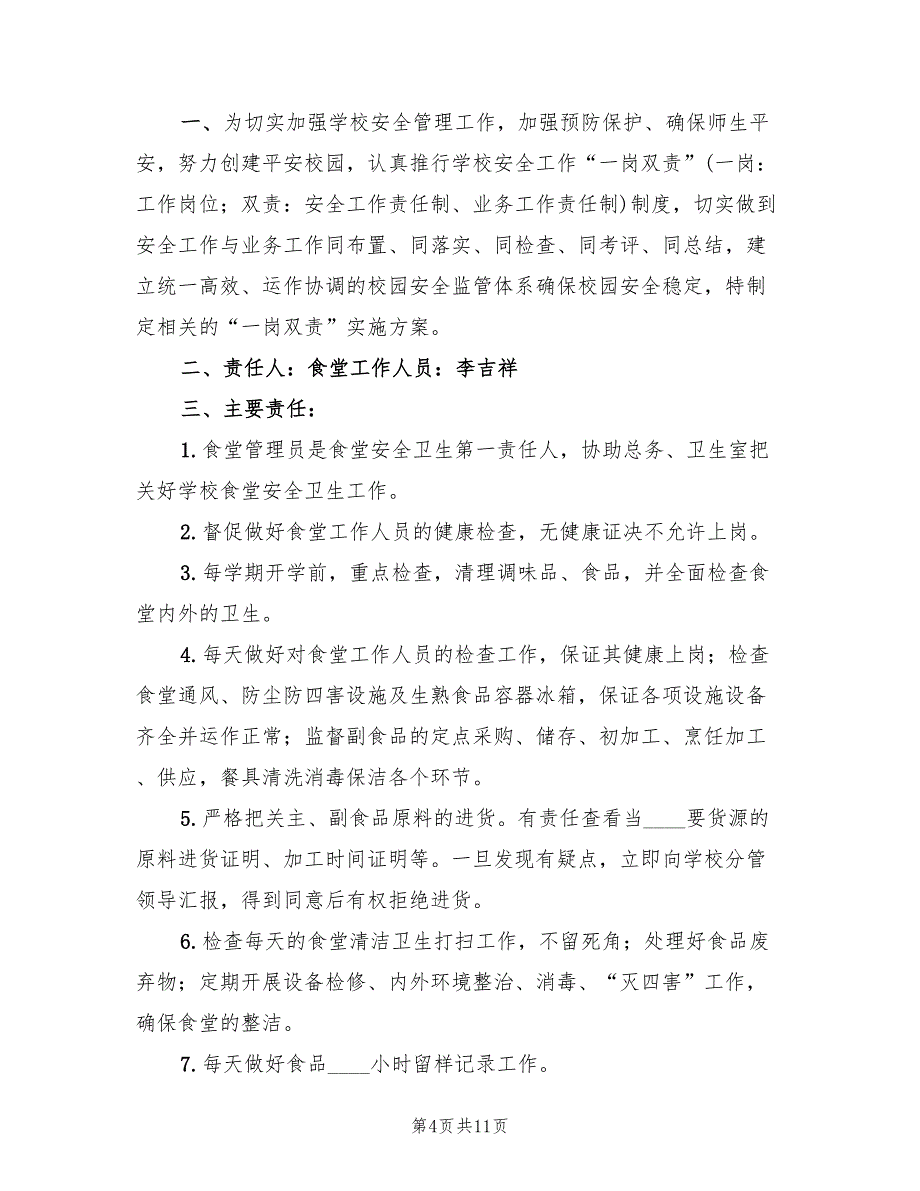 一、为切实加强学校安全管理工作，加强预防保护、确保师生平
安，努力创建平安校园，认真推行学校安全工作“一岗双责”(一岗：
工作岗位；双责：安全工作责任制、业务工作责任制)制度，切实做到
安全工作与业务工作同布置、同落实、同检查、同考评、同总结，建
立统一高效、运作协调的校园安全监管体系确保校园安全稳定，特制
定相关的“一岗双责”实施方案。
二、责任人：食堂工作人员：李吉祥
三、主要责任：
1. 食堂管理员是食堂安全卫生第一责任人，协助总务、卫生室把
关好学校食堂安全卫生工作。
2. 督促做好食堂工作人员的健康检查，无健康证决不允许上岗。
3. 每学期开学前，重点检查，清理调味品、食品，并全面检查食
堂内外的卫生。
4. 每天做好对食堂工作人员的检查工作，保证其健康上岗；检查
食堂通风、防尘防四害设施及生熟食品容器冰箱，保证各项设施设备
齐全并运作正常；监督副食品的定点采购、储存、初加工、烹饪加工
、供应，餐具清洗消毒保洁各个环节。
5. 严格把关主、副食品原料的进货。有责任查看当____要货源的
原料进货证明、加工时间证明等。一旦发现有疑点，立即向学校分管
领导汇报，得到同意后有权拒绝进货。
6. 检查每天的食堂清洁卫生打扫工作，不留死角；处理好食品废
弃物；定期开展设备检修、内外环境整治、消毒、“灭四害”工作，
确保食堂的整洁。
7. 每天做好食品____小时留样记录工作。
第4页共11页